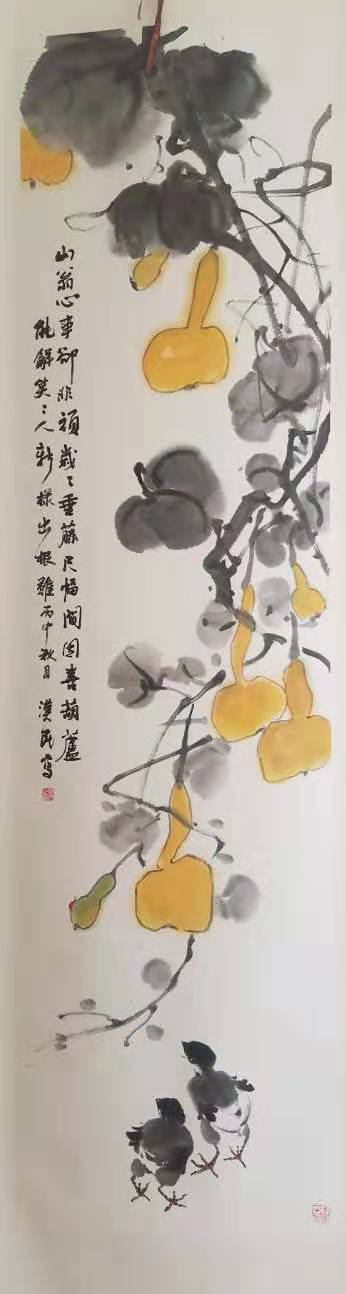 山翁心事卻非頑歲〻垂藤尺幅間因喜葫蘆
能解笑〻人新樣出根難丙申秋月 漢民寫